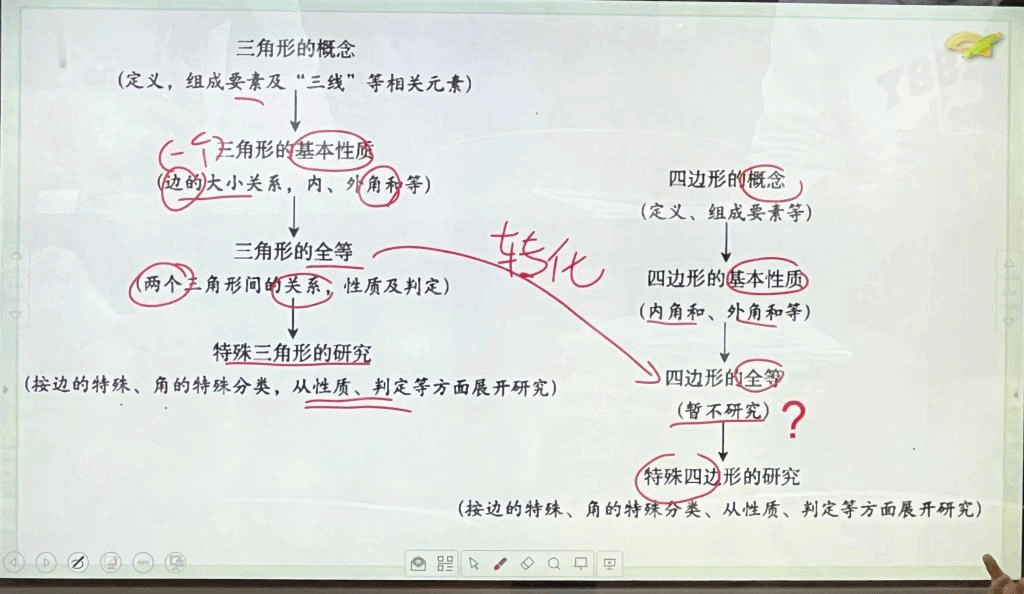 三角形的概念
(定义，组成要素及“三线”等相关元素)
(一个)三角形的基本性质
(边的大小关系，内、外角和等)
三角形的全等
(两个三角形间的关系，性质及判定)
特殊三角形的研究
(按边的特殊、角的特殊分类，从性质、判定等方面展开研究)
转化
四边形的概念
(定义、组成要素等)
四边形的基本性质
(内角和、外角和等)
四边形的全等
(暂不研究)?
特殊四边形的研究
(按边的特殊、角的特殊分类、从性质、判定等方面展开研究)